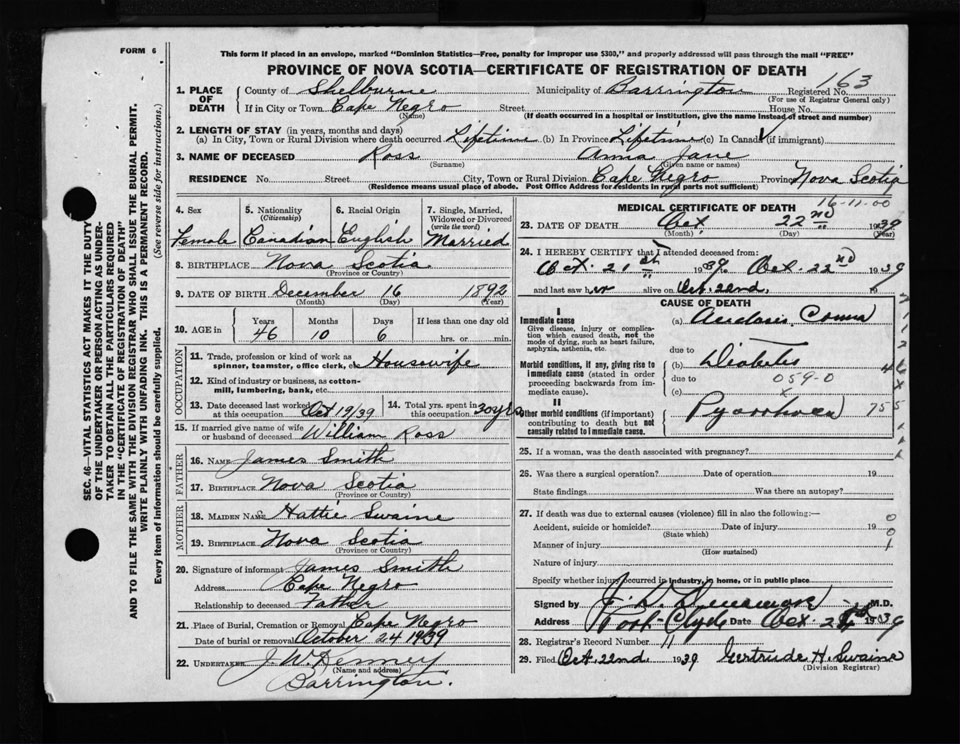 FORM 6
This form if placed in an envelope, marked "Dominion Statistics—Free, penalty for improper use $300," and properly addressed will pass through the mail "FREE"
PROVINCE OF NOVA SCOTIA—CERTIFICATE OF REGISTRATION OF DEATH
163
1. PLACE OF DEATH County of Shelburne Municipality of Barrington Registered No.
(For use of Registrar General only)
If in City or Town Cape Negro Street House No.
(Name) (If death occurred in a hospital or institution, give the name instead of street and number)
2. LENGTH OF STAY (in years, months and days)
(a) In City, Town or Rural Division where death occurred Lifetime (b) In Province Lifetime (c) In Canada (if immigrant)
3. NAME OF DECEASED Ross Anna Jane
(Surname) (Given name or names)
RESIDENCE No. Street City, Town or Rural Division Cape Negro Province Nova Scotia
(Residence means usual place of abode. Post Office Address for residents in rural parts not sufficient)
4. Sex 5. Nationality (Citizenship) 6. Racial Origin 7. Single, Married, Widowed or Divorced (write the word)
Female Canadian English Married
8. BIRTHPLACE Nova Scotia
(Province or Country)
9. DATE OF BIRTH December 16 1892
(Month) (Day) (Year)
10. AGE in Years Months Days If less than one day old
46 10 6 hrs. or min.
OCCUPATION
11. Trade, profession or kind of work as spinner, teamster, office clerk, etc. Housewife
12. Kind of industry or business, as cotton-mill, lumbering, bank, etc.
13. Date deceased last worked at this occupation Oct 19/39 14. Total yrs. spent in this occupation 30 yrs
15. If married give name of wife or husband of deceased William Ross
FATHER
16. NAME James Smith
17. BIRTHPLACE Nova Scotia
(Province or Country)
MOTHER
18. MAIDEN NAME Hattie Swaine
19. BIRTHPLACE Nova Scotia
(Province or Country)
20. Signature of informant James Smith
Address Cape Negro
Relationship to deceased Father
21. Place of Burial, Cremation or Removal Cape Negro
Date of burial or removal October 24 1939
22. UNDERTAKER J. W. Kenney
(Name and address)
Barrington.
16-11-00
MEDICAL CERTIFICATE OF DEATH
23. DATE OF DEATH Oct 22nd 1939
(Month) (Day) (Year)
24. I HEREBY CERTIFY that I attended deceased from:
Oct. 21st 1939 to Oct. 22nd 1939
and last saw her alive on Oct. 22nd. 19
CAUSE OF DEATH
I
Immediate cause
Give disease, injury or complication which caused death, not the mode of dying, such as heart failure, asphyxia, asthenia, etc.
(a) Acidosis, Coma
due to
Morbid conditions, if any, giving rise to immediate cause (stated in order proceeding backwards from immediate cause).
(b) Diabetes
due to 059-0
(c)
II
Other morbid conditions (if important) contributing to death but not causally related to immediate cause.
Pyorrhoea
25. If a woman, was the death associated with pregnancy?
26. Was there a surgical operation? Date of operation 19
State findings Was there an autopsy?
27. If death was due to external causes (violence) fill in also the following:—
Accident, suicide or homicide? Date of injury 19
(State which)
Manner of injury
(How sustained)
Nature of injury
Specify whether injury occurred in industry, in home, or in public place
Signed by M.D.
Address Port Clyde Date Oct 1939
28. Registrar's Record Number 11
29. Filed Oct. 22nd. 1939 Gertrude H. Swaine
(Division Registrar)
SEC. 46—VITAL STATISTICS ACT MAKES IT THE DUTY
OF THE UNDERTAKER OR PERSON ACTING AS UNDER-
TAKER TO OBTAIN ALL THE PARTICULARS REQUIRED
IN THE "CERTIFICATE OF REGISTRATION OF DEATH"
AND TO FILE THE SAME WITH THE DIVISION REGISTRAR WHO SHALL ISSUE THE BURIAL PERMIT.
WRITE PLAINLY WITH UNFADING INK. THIS IS A PERMANENT RECORD.
Every item of information should be carefully supplied. (See reverse side for instructions.)